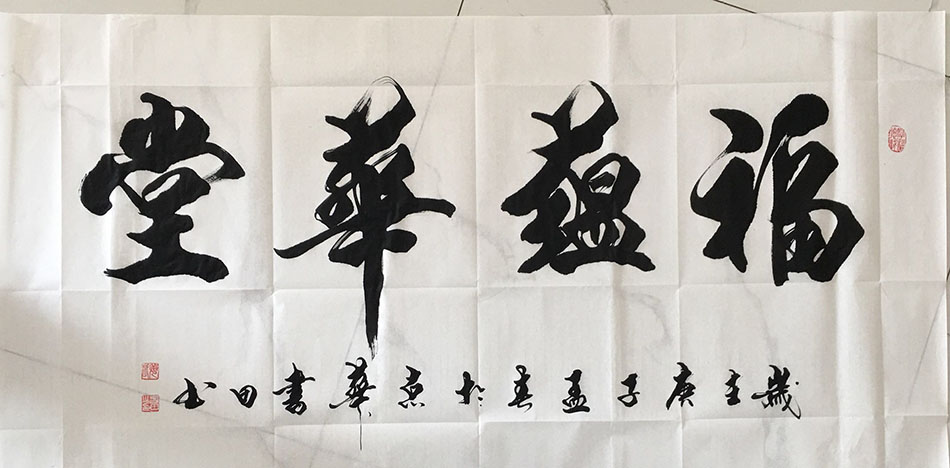 福蘊華堂
歲在庚子孟春於京華書田书